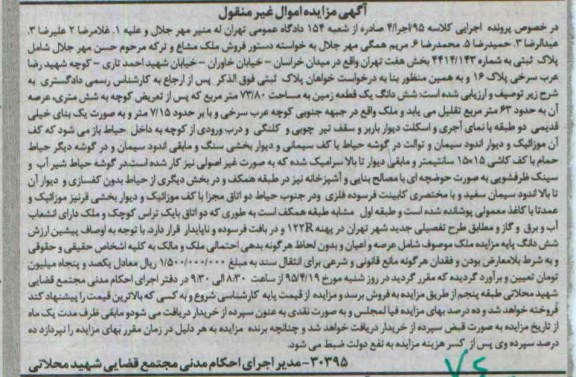 آگهی مزایده اموال غیر منقول
در خصوص پرونده اجرایی کلاسه ۹۵اجرا/۴ صادره از شعبه ۱۵۴ دادگاه عمومی تهران له منیر مهر جلال و علیه ۱. غلامرضا ۲ علیرضا ۳.
عبدالرضا ۳. حمیدرضا ۵. محمدرضا ۶. مریم همگی مهر جلال به خواسته دستور فروش ملک مشاع و ترکه مرحوم حسن مهر جلال شامل
پلاک ثبتی به شماره ۴۴۱۴/۱۴۳ بخش هفت تهران واقع در میدان خراسان – خیابان خاوران – خیابان شهید احمد تاری – کوچه شهید رضا
عرب سرخی پلاک ۱۶ و به همین منظور بنا به درخواست خواهان پلاک ثبتی فوق الذکر پس از ارجاع به کارشناس رسمی دادگستری به
شرح زیر توصیف و ارزیابی شده است: شش دانگ یک قطعه زمین به مساحت ۷۳/۸۰ متر مربع که پس از تعریض کوچه به شش متری، عرصه
آن به حدود ۶۳ متر مربع تقلیل می یابد و ملک واقع در جبهه جنوبی کوچه عرب سرخی و با بر حدود ۷/۱۵ متر و به صورت یک بنای خیلی
قدیمی دو طبقه با نمای آجری و اسکلت دیوار باربر و سقف تیر چوبی و کلنگی و درب ورودی از کوچه به داخل حیاط باز می شود که کف
آن موزائیک و دیوار اندود سیمان و توالت در گوشه حیاط با کف سیمانی و دیوار بخشی سنگ و مابقی اندود سیمان و در گوشه دیگر حیاط
حمام با کف کاشی ۱۵×۱۵ سانتیمتر و مابقی دیوار تا بالا سرامیک شده که به صورت غیر اصولی نیز کار شده است.در گوشه حیاط شیر آب و
سینک ظرفشویی به صورت حوضچه ای با مصالح بنایی و آشپزخانه نیز در طبقه همکف و در بخش دیگری از حیاط بدون کفسازی و دیوار آن
تا بالا اندود سیمان سفید و با مختصری کابینت فرسوده فلزی ودر جنوب حیاط دو اتاق مجزا با کف موزائیک و دیوار بخشی قرنیز موزائیک و
عمدتا با کاغذ معمولی پوشانده شده است و طبقه اول مشابه طبقه همکف است به طوری که دو اتاق بایک تراس کوچک و ملک دارای انشعاب
آب و برق و گاز و مطابق طرح تفصیلی جدید شهر تهران در پهنه R۱۲۲ و در بافت فرسوده و ناپایدار قرار دارد. با توجه به اوصاف پیشین ارزش
شش دانگ پایه مزایده ملک موصوف شامل عرصه و اعیان و بدون لحاظ هرگونه بدهی احتمالی ملک و مالک به کلیه اشخاص حقیقی و حقوقی
و به شرط بلامعارض بودن و فقدان هرگونه مانع قانونی و شرعی برای انتقال سند به مبلغ ۱/۵۰۰/۰۰۰/۰۰۰ ریال معادل یکصد و پنجاه میلیون
تومان تعیین و برآورد گردیده که مقرر گردید در روز شنبه مورخ ۹۵/۴/۱۹ از ساعت ۸،۳۰ الی ۹،۳۰ در دفتر اجرای احکام مدنی مجتمع قضایی
شهید محلاتی طبقه پنجم از طریق مزایده به فروش برسد و مزایده از قیمت پایه کارشناسی شروع و به کسی که بالاترین قیمت را پیشنهاد کند
فروخته خواهد شد و ده درصد بهای مزایده فی المجلس و به صورت نقدی به عنوان سپرده از خریدار دریافت می شودو مابقی ظرف مدت یک ماه
از تاریخ مزایده به صورت قبض سپرده از خریدار دریافت خواهد شد و چنانچه برنده مزایده به هر دلیل در زمان مقرر بهای مزایده را نپردازد ده
درصد سپرده وی پس از کسر هزینه مزایده به نفع دولت ضبط می شود.
۳۰۳۹۵– مدیر اجرای احکام مدنی مجتمع قضایی شهید محلاتی